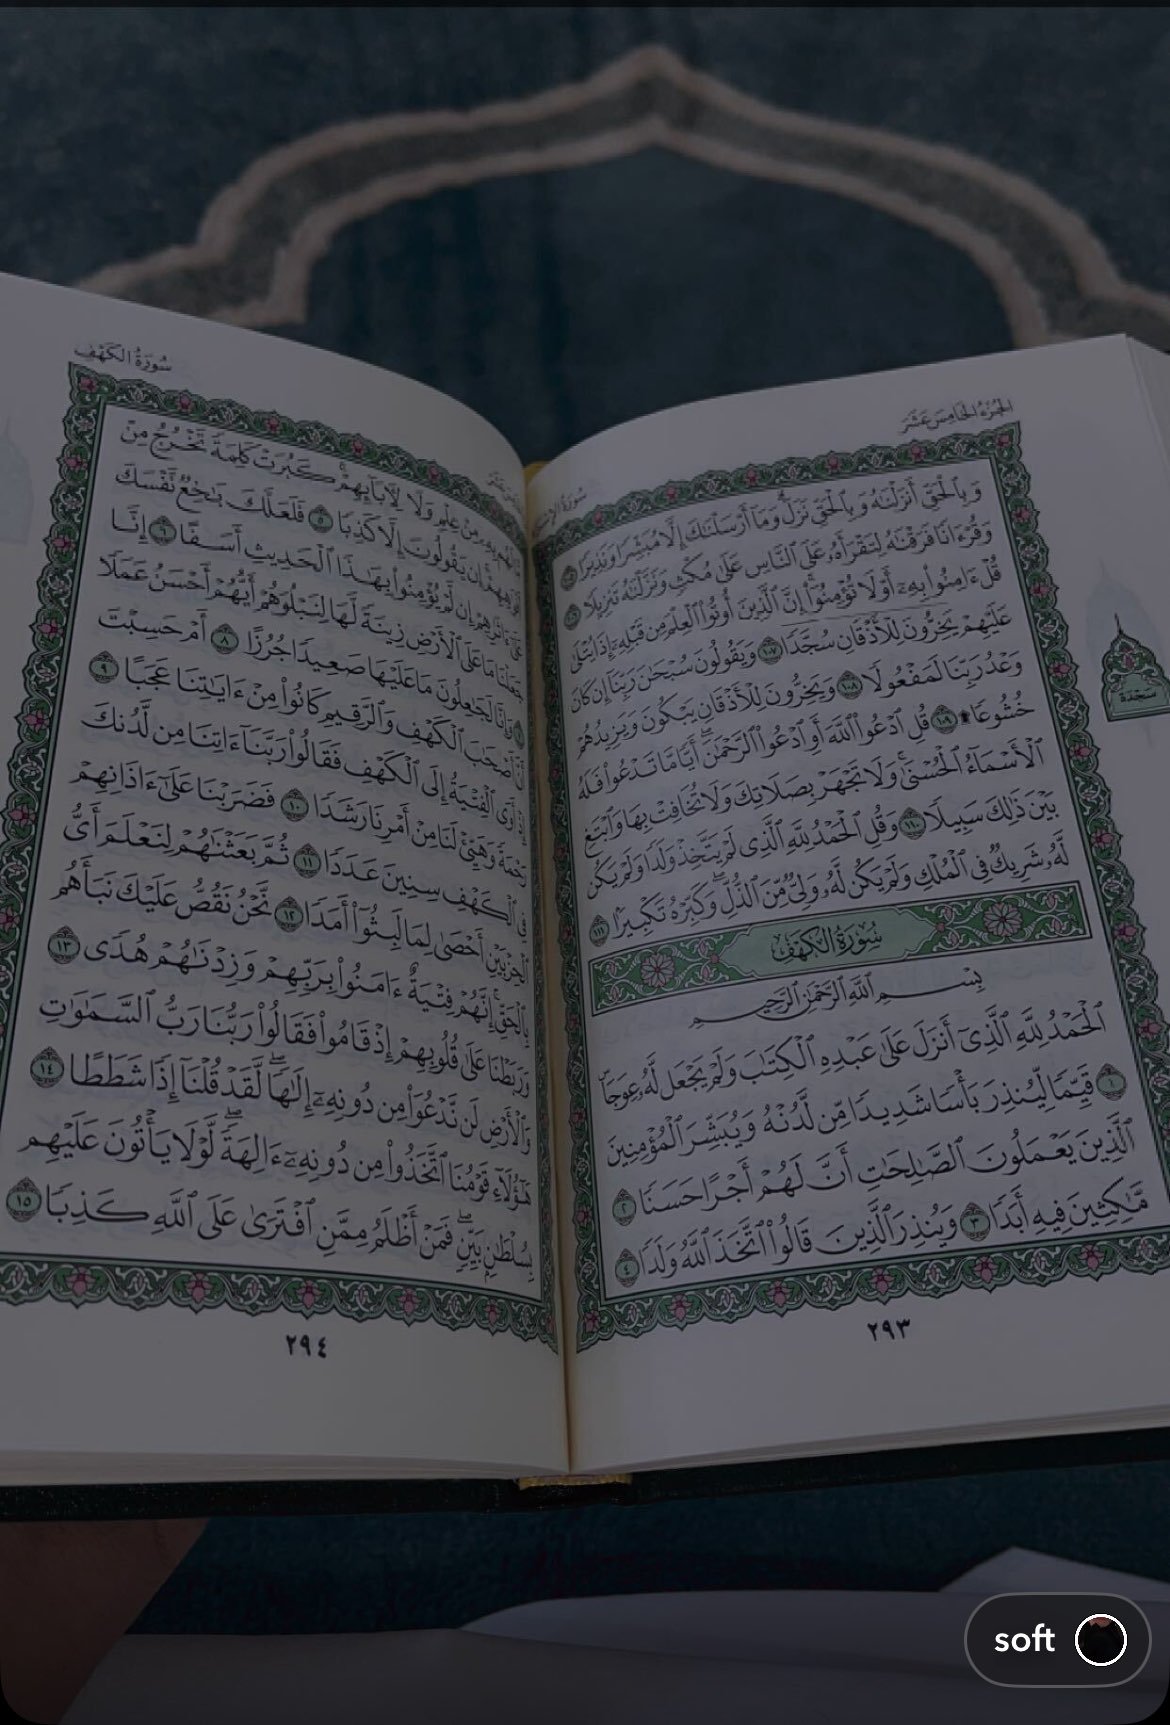 الجزء الخامس عشر
سورة الإسراء
وَبِٱلْحَقِّ أَنزَلْنَٰهُ وَبِٱلْحَقِّ نَزَلَ وَمَآ أَرْسَلْنَٰكَ إِلَّا مُبَشِّرًا وَنَذِيرًا ١٠٥
وَقُرْءَانًا فَرَقْنَٰهُ لِتَقْرَأَهُۥ عَلَى ٱلنَّاسِ عَلَىٰ مُكْثٍ وَنَزَّلْنَٰهُ تَنزِيلًا ١٠٦
قُلْ ءَامِنُوا۟ بِهِۦٓ أَوْ لَا تُؤْمِنُوٓا۟ إِنَّ ٱلَّذِينَ أُوتُوا۟ ٱلْعِلْمَ مِن قَبْلِهِۦٓ إِذَا يُتْلَىٰ
عَلَيْهِمْ يَخِرُّونَ لِلْأَذْقَانِ سُجَّدًا ١٠٧ وَيَقُولُونَ سُبْحَٰنَ رَبِّنَآ إِن كَانَ
وَعْدُ رَبِّنَا لَمَفْعُولًا ١٠٨ وَيَخِرُّونَ لِلْأَذْقَانِ يَبْكُونَ وَيَزِيدُهُمْ
خُشُوعًا ۩ ١٠٩ قُلِ ٱدْعُوا۟ ٱللَّهَ أَوِ ٱدْعُوا۟ ٱلرَّحْمَٰنَ ۖ أَيًّا مَّا تَدْعُوا۟ فَلَهُ
ٱلْأَسْمَآءُ ٱلْحُسْنَىٰ ۚ وَلَا تَجْهَرْ بِصَلَاتِكَ وَلَا تُخَافِتْ بِهَا وَٱبْتَغِ
بَيْنَ ذَٰلِكَ سَبِيلًا ١١٠ وَقُلِ ٱلْحَمْدُ لِلَّهِ ٱلَّذِى لَمْ يَتَّخِذْ وَلَدًا وَلَمْ يَكُن
لَّهُۥ شَرِيكٌ فِى ٱلْمُلْكِ وَلَمْ يَكُن لَّهُۥ وَلِىٌّ مِّنَ ٱلذُّلِّ ۖ وَكَبِّرْهُ تَكْبِيرًۢا ١١١
سُورَةُ الكَهْفِ
بِسْمِ ٱللَّهِ ٱلرَّحْمَٰنِ ٱلرَّحِيمِ
ٱلْحَمْدُ لِلَّهِ ٱلَّذِىٓ أَنزَلَ عَلَىٰ عَبْدِهِ ٱلْكِتَٰبَ وَلَمْ يَجْعَل لَّهُۥ عِوَجَاۜ
١ قَيِّمًا لِّيُنذِرَ بَأْسًا شَدِيدًا مِّن لَّدُنْهُ وَيُبَشِّرَ ٱلْمُؤْمِنِينَ
ٱلَّذِينَ يَعْمَلُونَ ٱلصَّٰلِحَٰتِ أَنَّ لَهُمْ أَجْرًا حَسَنًا ٢
مَّٰكِثِينَ فِيهِ أَبَدًا ٣ وَيُنذِرَ ٱلَّذِينَ قَالُوا۟ ٱتَّخَذَ ٱللَّهُ وَلَدًا ٤
٢٩٣
سجدة
سُورَةُ الكَهْفِ
مَّا لَهُم بِهِۦ مِنْ عِلْمٍ وَلَا لِـَٔابَآئِهِمْ ۚ كَبُرَتْ كَلِمَةً تَخْرُجُ مِنْ
أَفْوَٰهِهِمْ ۚ إِن يَقُولُونَ إِلَّا كَذِبًا ٥ فَلَعَلَّكَ بَٰخِعٌ نَّفْسَكَ
عَلَىٰٓ ءَاثَٰرِهِمْ إِن لَّمْ يُؤْمِنُوا۟ بِهَٰذَا ٱلْحَدِيثِ أَسَفًا ٦ إِنَّا
جَعَلْنَا مَا عَلَى ٱلْأَرْضِ زِينَةً لَّهَا لِنَبْلُوَهُمْ أَيُّهُمْ أَحْسَنُ عَمَلًا
٧ وَإِنَّا لَجَٰعِلُونَ مَا عَلَيْهَا صَعِيدًا جُرُزًا ٨ أَمْ حَسِبْتَ
أَنَّ أَصْحَٰبَ ٱلْكَهْفِ وَٱلرَّقِيمِ كَانُوا۟ مِنْ ءَايَٰتِنَا عَجَبًا ٩
إِذْ أَوَى ٱلْفِتْيَةُ إِلَى ٱلْكَهْفِ فَقَالُوا۟ رَبَّنَآ ءَاتِنَا مِن لَّدُنكَ
رَحْمَةً وَهَيِّئْ لَنَا مِنْ أَمْرِنَا رَشَدًا ١٠ فَضَرَبْنَا عَلَىٰٓ ءَاذَانِهِمْ
فِى ٱلْكَهْفِ سِنِينَ عَدَدًا ١١ ثُمَّ بَعَثْنَٰهُمْ لِنَعْلَمَ أَىُّ
ٱلْحِزْبَيْنِ أَحْصَىٰ لِمَا لَبِثُوٓا۟ أَمَدًا ١٢ نَّحْنُ نَقُصُّ عَلَيْكَ نَبَأَهُم
بِٱلْحَقِّ ۚ إِنَّهُمْ فِتْيَةٌ ءَامَنُوا۟ بِرَبِّهِمْ وَزِدْنَٰهُمْ هُدًى ١٣
وَرَبَطْنَا عَلَىٰ قُلُوبِهِمْ إِذْ قَامُوا۟ فَقَالُوا۟ رَبُّنَا رَبُّ ٱلسَّمَٰوَٰتِ
وَٱلْأَرْضِ لَن نَّدْعُوَا۟ مِن دُونِهِۦٓ إِلَٰهًا ۖ لَّقَدْ قُلْنَآ إِذًا شَطَطًا ١٤
هَٰٓؤُلَآءِ قَوْمُنَا ٱتَّخَذُوا۟ مِن دُونِهِۦٓ ءَالِهَةً ۖ لَّوْلَا يَأْتُونَ عَلَيْهِم
بِسُلْطَٰنٍۭ بَيِّنٍ ۖ فَمَنْ أَظْلَمُ مِمَّنِ ٱفْتَرَىٰ عَلَى ٱللَّهِ كَذِبًا ١٥
٢٩٤
soft